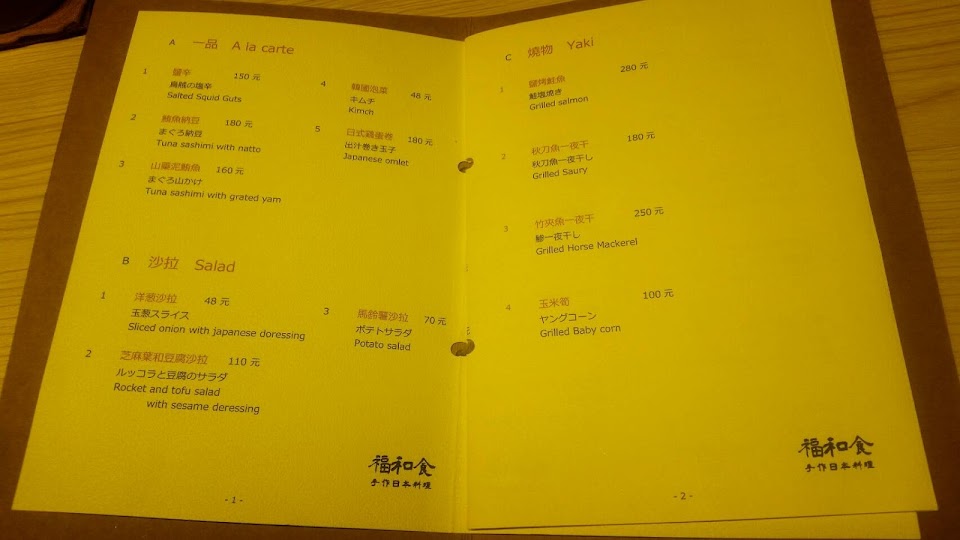 A 一品 A la carte
1 鹽辛 150 元
烏賊の塩辛
Salted Squid Guts
2 鮪魚納豆 180 元
まぐろ納豆
Tuna sashimi with natto
3 山藥泥鮪魚 160 元
まぐろ山かけ
Tuna sashimi with grated yam
4 韓國泡菜 48 元
キムチ
Kimch
5 日式雞蛋卷 180 元
出汁巻き玉子
Japanese omlet
B 沙拉 Salad
1 洋葱沙拉 48 元
玉葱スライス
Sliced onion with japanese doressing
2 芝麻葉和豆腐沙拉 110 元
ルッコラと豆腐のサラダ
Rocket and tofu salad
with sesame deressing
3 馬鈴薯沙拉 70 元
ポテトサラダ
Potato salad
福和食
手作日本料理
- 1 -
C 燒物 Yaki
1 鹽烤鮭魚 280 元
鮭塩焼き
Grilled salmon
2 秋刀魚一夜干 180 元
秋刀魚一夜干し
Grilled Saury
3 竹夾魚一夜干 250 元
鯵一夜干し
Grilled Horse Mackerel
4 玉米筍 100 元
ヤングコーン
Grilled Baby corn
福和食
手作日本料理
- 2 -